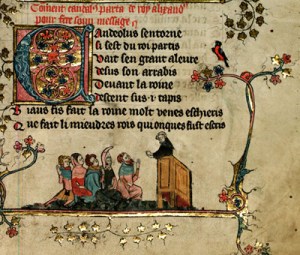 Coment candal' parti de roy alixand'
pour fere son message
Candeolus sentorne
si sest du roi partis
Vait sen grant aleure
desus son arrabis
Devant la roine
descent sus .i. tapis
Biaus fis fait la roine molt venes eschieris
Que fait li mieudres rois qui onques fust escris